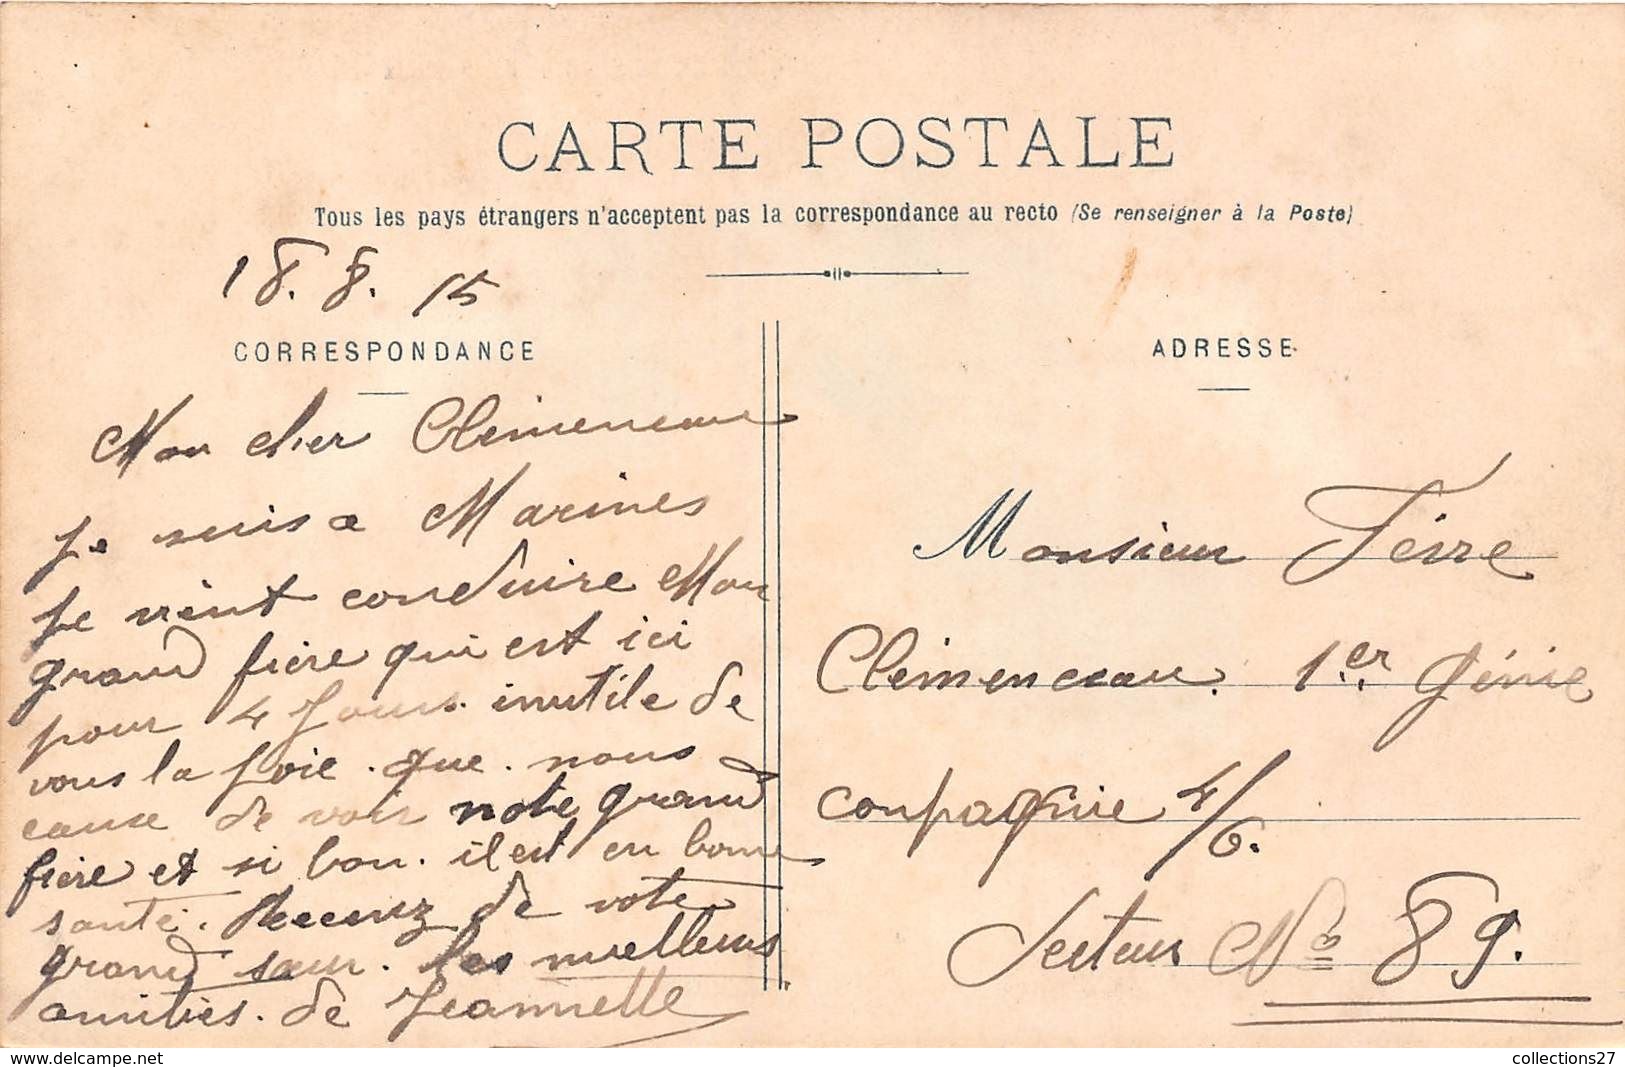 CARTE POSTALE
Tous les pays étrangers n'acceptent pas la correspondance au recto (Se renseigner à la Poste)
18.8.15
CORRESPONDANCE
Mon cher Clémenceau
Je suis a Marines
Je vient conduire Mon
grand frère qui est ici
pour 4 Jours. inutile de
vous la Joie. que. nous
cause de voir note grand
frère et si bon. il est en bonne
santé. Recevez de vote
grand sœur. les meilleurs
amitiés. de Jeannette
ADRESSE
Monsieur Ferre
Clémenceau. 1er Génie
compagnie 4/6.
Secteur No 89.
collections27